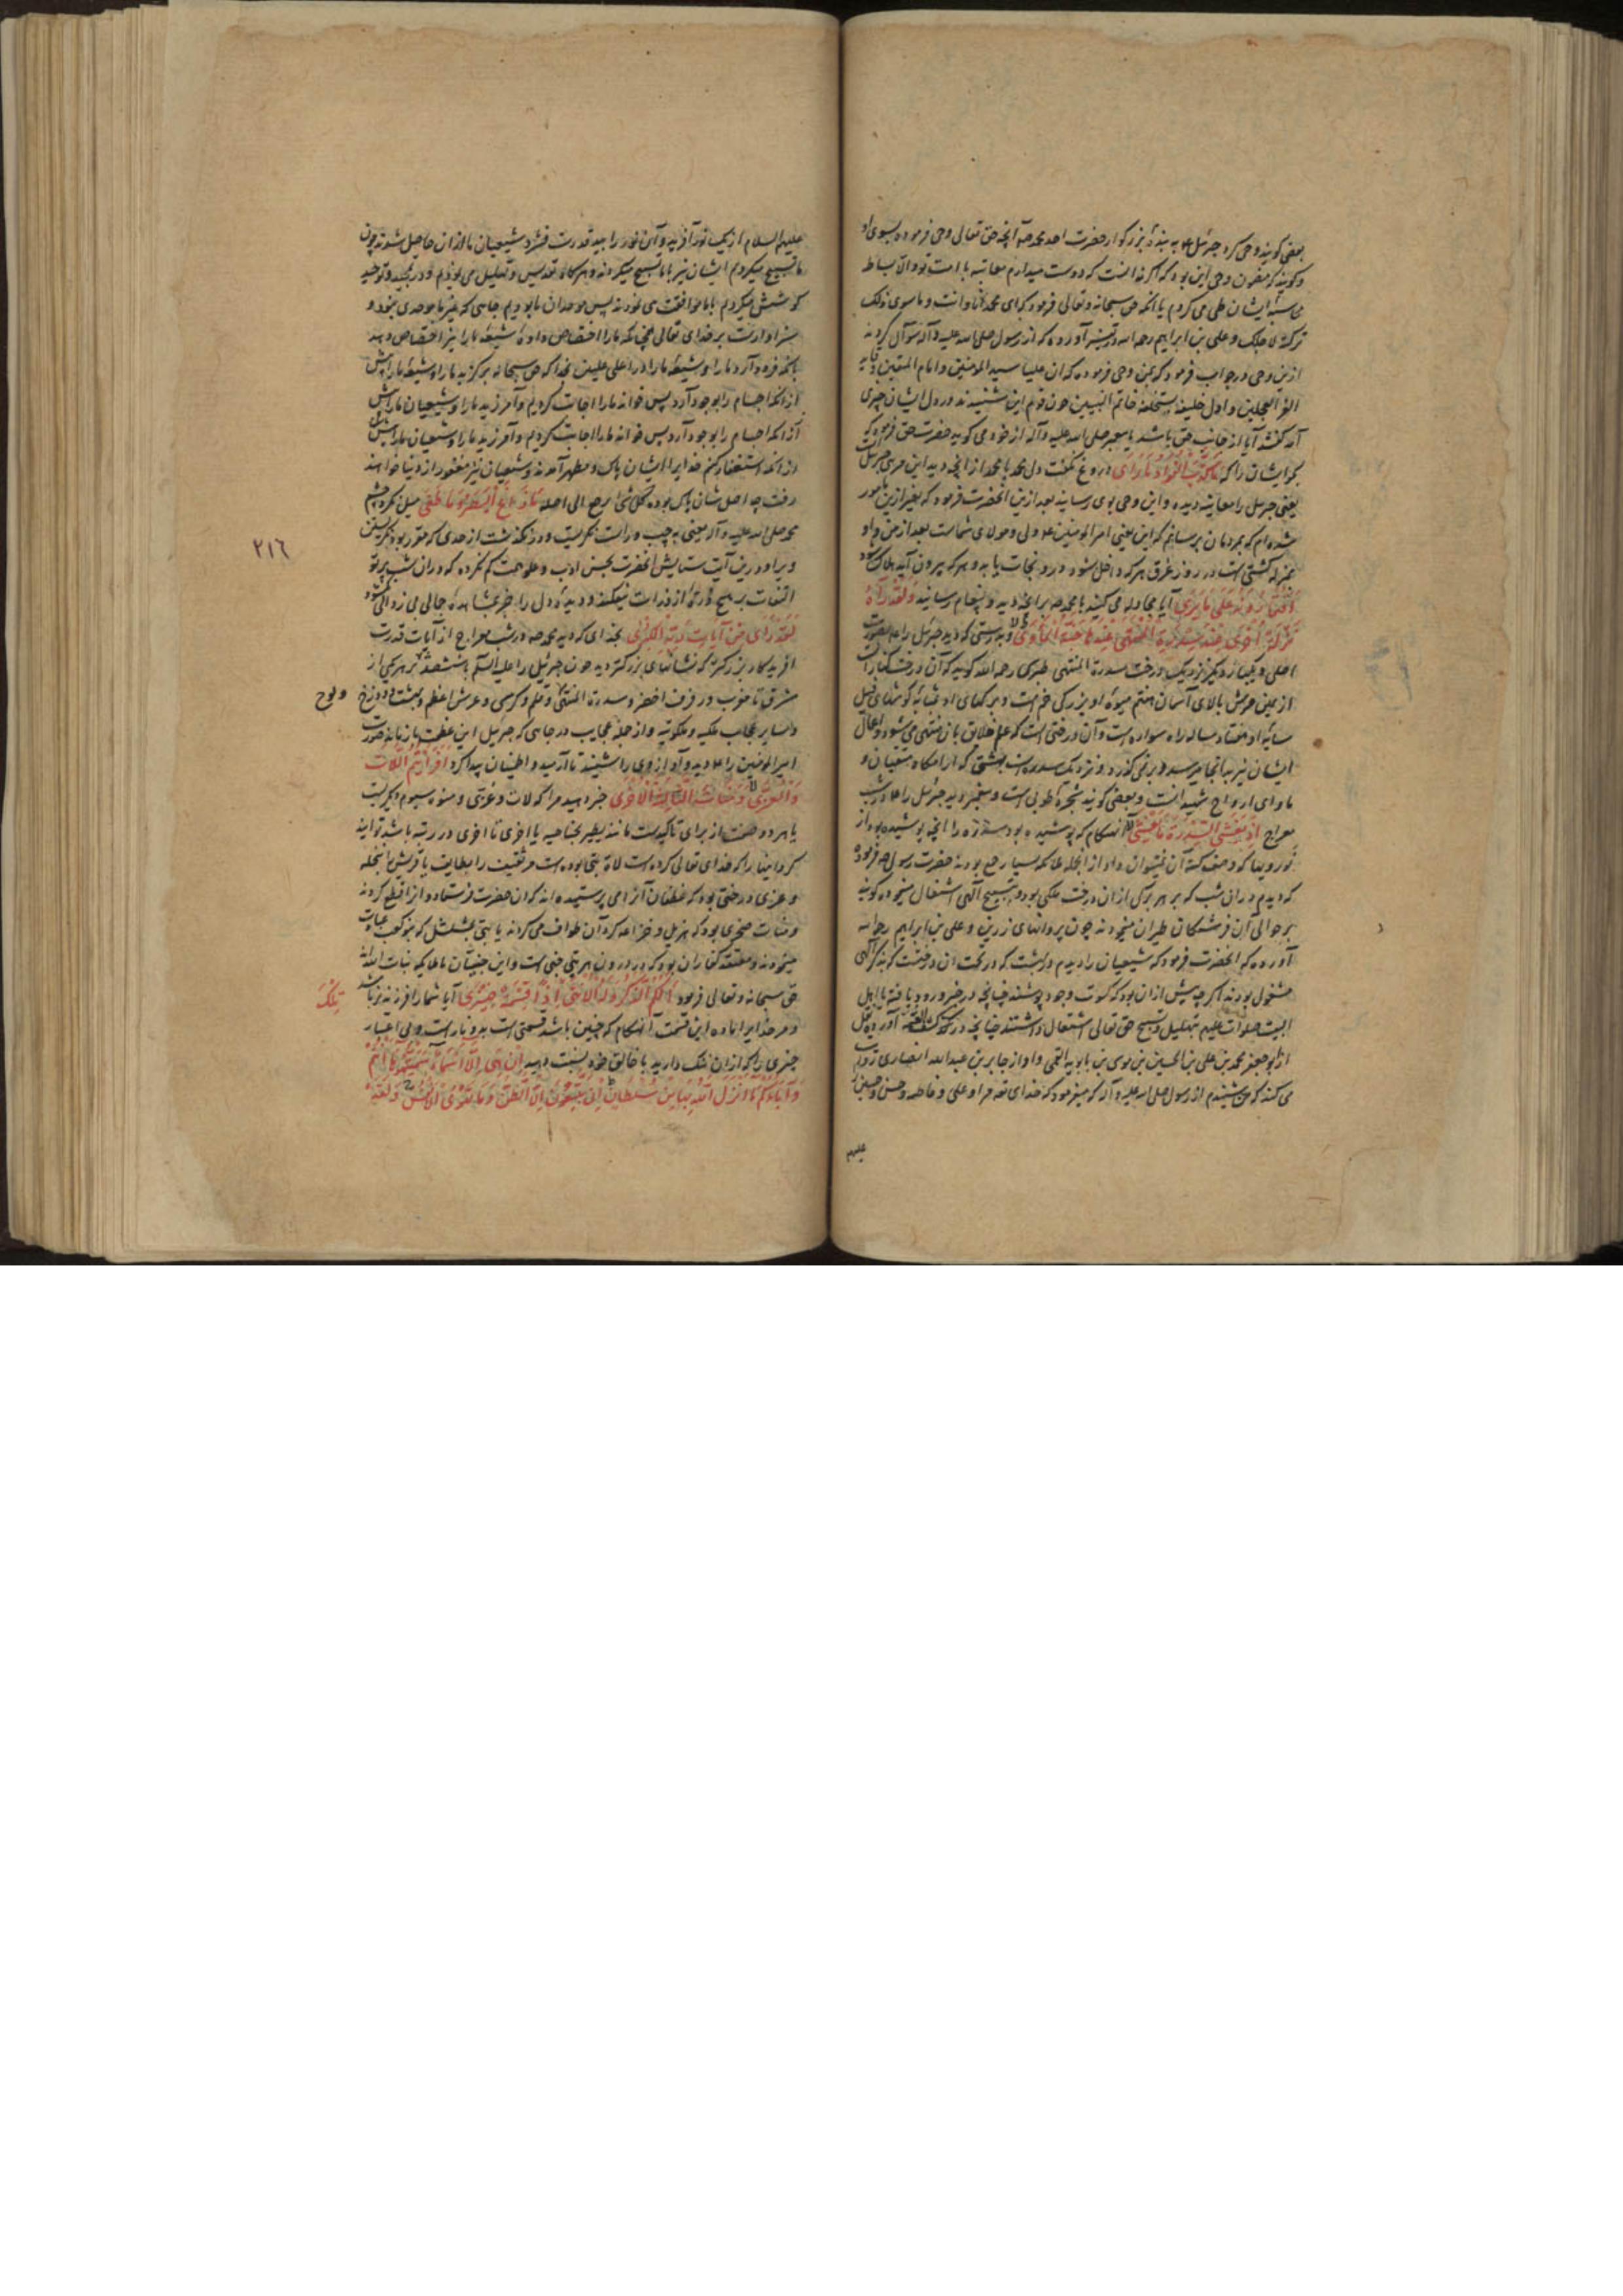 بعضی کویند وحی کرد جبرئیل ع به بندهٔ بزرکوار حضرت احد محمد ص آنچه حق تعالی وحی فرموده بسوی او
وکویند که مضمون وحی این بود که اکر نه آنست که دوست میدارم معاتبه با امت تو والا بساط
محاسبهٔ ایشان طی می کردم یا آنکه حق سبحانه وتعالی فرمود که ای محمد انا وانت وما سوی ذلک
ترکته لاجلک وعلی بن ابراهیم رحمه الله در تفسیر آورده که از رسول صلی الله علیه وآله سؤال کردند
ازین وحی در جواب فرمود که بمن وحی فرموده که ان علیا سید المؤمنین وامام المتقین وقاید
الغر المحجلین واول خلیفة یستخلفه خاتم النبیین چون قوم این شنیدند در دل ایشان چیزی
آمد گفتند آیا از جانب حق باشد یا پیغمبر صلی الله علیه وآله از خود می کوید حضرت حق فرمود که
بکو ایشان را که مَا کَذَبَ الْفُؤَادُ مَا رَأَی دروغ نکفت دل محمد با محمد از آنچه دید این مرئی جبرئیل است
یعنی جبرئیل را معاینه دیده واین وحی بوی رسانید بعد ازین آنحضرت فرمود که بغیر ازین مامور
شده ام که بمردمان برسانم که این یعنی امیر المؤمنین ع ولی ومولای شماست بعد از من واو
بمنزله کشتی است در روز غرق هر که داخل شود درو نجات یابد وهر که بیرون آید هلاک شود
أَفَتُمَارُونَهُ عَلَی مَا یَرَی آیا مجادله می کنید با محمد ص بر آنچه دید وپیغام رسانید وَلَقَدْ رَآهُ
نَزْلَةً أُخْرَی عِنْدَ سِدْرَةِ الْمُنْتَهَی عِنْدَهَا جَنَّةُ الْمَأْوَی وبدرستی که دید جبرئیل را ع بصورت
اصلی ویکبار دیکر نزدیک درخت سدرة المنتهی طبری رحمه الله کوید که آن درخت کنار است
از یمین عرش بالای آسمان هفتم میوهٔ او بزرکی خم است وبرکهای او بمثابه کوشهای فیل
سایهٔ او هفتاد ساله راه سواره است وآن درختی است که علم خلایق بآن منتهی می شود واعمال
ایشان نیز بدانجا میرسد وبر نمی گذرد ونزدیک سدره است بهشتی که آرامکاه متقیان و
ماوای ارواح شهیدانست وبعضی کویند شجرهٔ طوبی است وپیغمبر دید جبرئیل را ع در شب
معراج إِذْ یَغْشَی السِّدْرَةَ مَا یَغْشَی آنهنکام که پوشیده بود سدره را آنچه پوشیده بود از
نور وبها که وصف کنه آن نتوان داد از آنجمله ملائکه بسیار جمع بودند حضرت رسول ص فرمود
که دیدم در آن شب که بر هر برکی از ان درخت ملکی بود وبتسبیح آلهی اشتغال مینموده کویند
بر حوالی آن فرشتکان طیران مینمودند چون پروانهای زرین وعلی بن ابراهیم رحمه الله
آورده که آنحضرت فرمود که شیعیان را دیدم در بهشت که در تحت آن درخت که بذکر آلهی
مشغول بودند اکرچه پیش ازان بود که کسوت وجود پوشند چنانچه در خبر ورود یافته با اهل
البیت صلوات علیهم بتهلیل وتسبیح حق تعالی اشتغال داشتند چنانچه در کشف الغمه آورده نقل
از ابو جعفر محمد بن علی بن الحسین بن موسی بن بابویه القمی واو از جابر بن عبد الله انصاری روایت
می کند که من شنیدم از رسول صلی الله علیه وآله که میفرمود که خدای تعه مرا وعلی وفاطمه وحسن وحسین را
علیهم
علیهم السلام از یک نور آفرید وآن نور را بید قدرت فشرد شیعیان ما از ان حاصل شدند چون
ما تسبیح میکردیم ایشان نیز با ما تسبیح میکردند وهر کاه تقدیس وتهلیل می نمودیم ودر تمجید وتوحید
کوشش میکردیم با ما موافقت می نمودند پس موحدان ما بودیم جایی که غیر ما موحدی نبود و
سزاوارست بر خدای تعالی همچنانکه ما را اختصاص داده شیعهٔ ما را نیز اختصاص دهد
بآنکه فرود آرد ما را وشیعهٔ ما را در اعلی علیین بخدا که حق سبحانه برکزید ما را وشیعهٔ ما را پیش
از آنکه اجسام را بوجود آرد پس خواند ما را اجابت کردیم وآمرزید ما را وشیعیان ما را پیش
از آنکه اجسام را بوجود آرد پس خواند ما را اجابت کردیم وآمرزید ما را وشیعیان ما را پیش
از آنکه استغفار کنیم خدایرا ایشان پاک ومطهر آمدند وشیعیان نیز مغفور از دنیا خواهند
رفت چه اصل شان پاک بوده کل شیٔ یرجع الی اصله مَا زَاغَ الْبَصَرُ وَمَا طَغَی میل نکرد چشم
محمد صلی الله علیه وآله یعنی بچپ وراست ننکریست ودر نکذشت از حدی که مقرر بود نکریستن
ویرا ودرین آیت ستایش آنحضرت بحسن ادب وعلو همت کم نکرده که در ان شب پرتو
التفات بر هیچ ذرهٔ از ذرات نیفکند ودیدهٔ دل را جز بمشاهدهٔ جمال بی زوال نکشود
لَقَدْ رَأَی مِنْ آیَاتِ رَبِّهِ الْکُبْرَی بخدای که دید محمد ص در شب معراج از آیات قدرت
آفریدکار بزرکتر که نشانهای بزرکتر دید چون جبرئیل را علیه السلم با ششصد پر هر یکی از
مشرق تا مغرب ورفرف اخضر وسدرة المنتهی وقلم وکرسی وعرش اعظم وبهشت ودوزخ
ولوح
وسایر عجایب ملکیه وملکوتیه واز جمله عجایب در جایی که جبرئیل این عظمت باز ماند صورت
امیر المؤمنین را ع دید وآواز وی را شنید تا آرمید واطمینان پیدا کرد أَفَرَأَیْتُمُ اللَّاتَ
وَالْعُزَّی وَمَنَاةَ الثَّالِثَةَ الْأُخْرَی خبر دهید مرا که لات وعزی ومنوة سیوم دیکر پست
یا هر دو صفت از برای تاکیدست مانند یطیر بجناحیه یا اخری تا اخری در رتبه باشد تواند
کرد اینها را که خدای تعالی کرده است لاة بتی بوده است مر ثقیف را بطایف یا قریش را بنخله
وعزی درختی بود که غطفان آنرا می پرستیده اند که آن حضرت فرستاد وانرا قطع کردند
ومنات صخری بود که هذیل وخزاعه کرد آن طواف می کردند یا بتی بمشلل که بنو کعب عبادت
مینمودند ومعتقد کفار آن بود که در درون هر بتی جنی است واین جنیان ملائکه بنات الله اند
حق سبحانه وتعالی فرمود أَلَکُمُ الذَّکَرُ وَلَهُ الْأُنْثَی تِلْکَ إِذًا قِسْمَةٌ ضِیزَی آیا شما را فرزند نر باشد
ومر خدایرا ماده این قسمت آنهنکام که چنین باشد قسمتی است بد ونا راست وبی اعتبار
چیزی را که از ان ننک دارید با خالق خود نسبت دهید إِنْ هِیَ إِلَّا أَسْمَاءٌ سَمَّیْتُمُوهَا أَنْتُمْ
وَآبَاؤُکُمْ مَا أَنْزَلَ اللَّهُ بِهَا مِنْ سُلْطَانٍ إِنْ یَتَّبِعُونَ إِلَّا الظَّنَّ وَمَا تَهْوَی الْأَنْفُسُ وَلَقَدْ
٢١٦